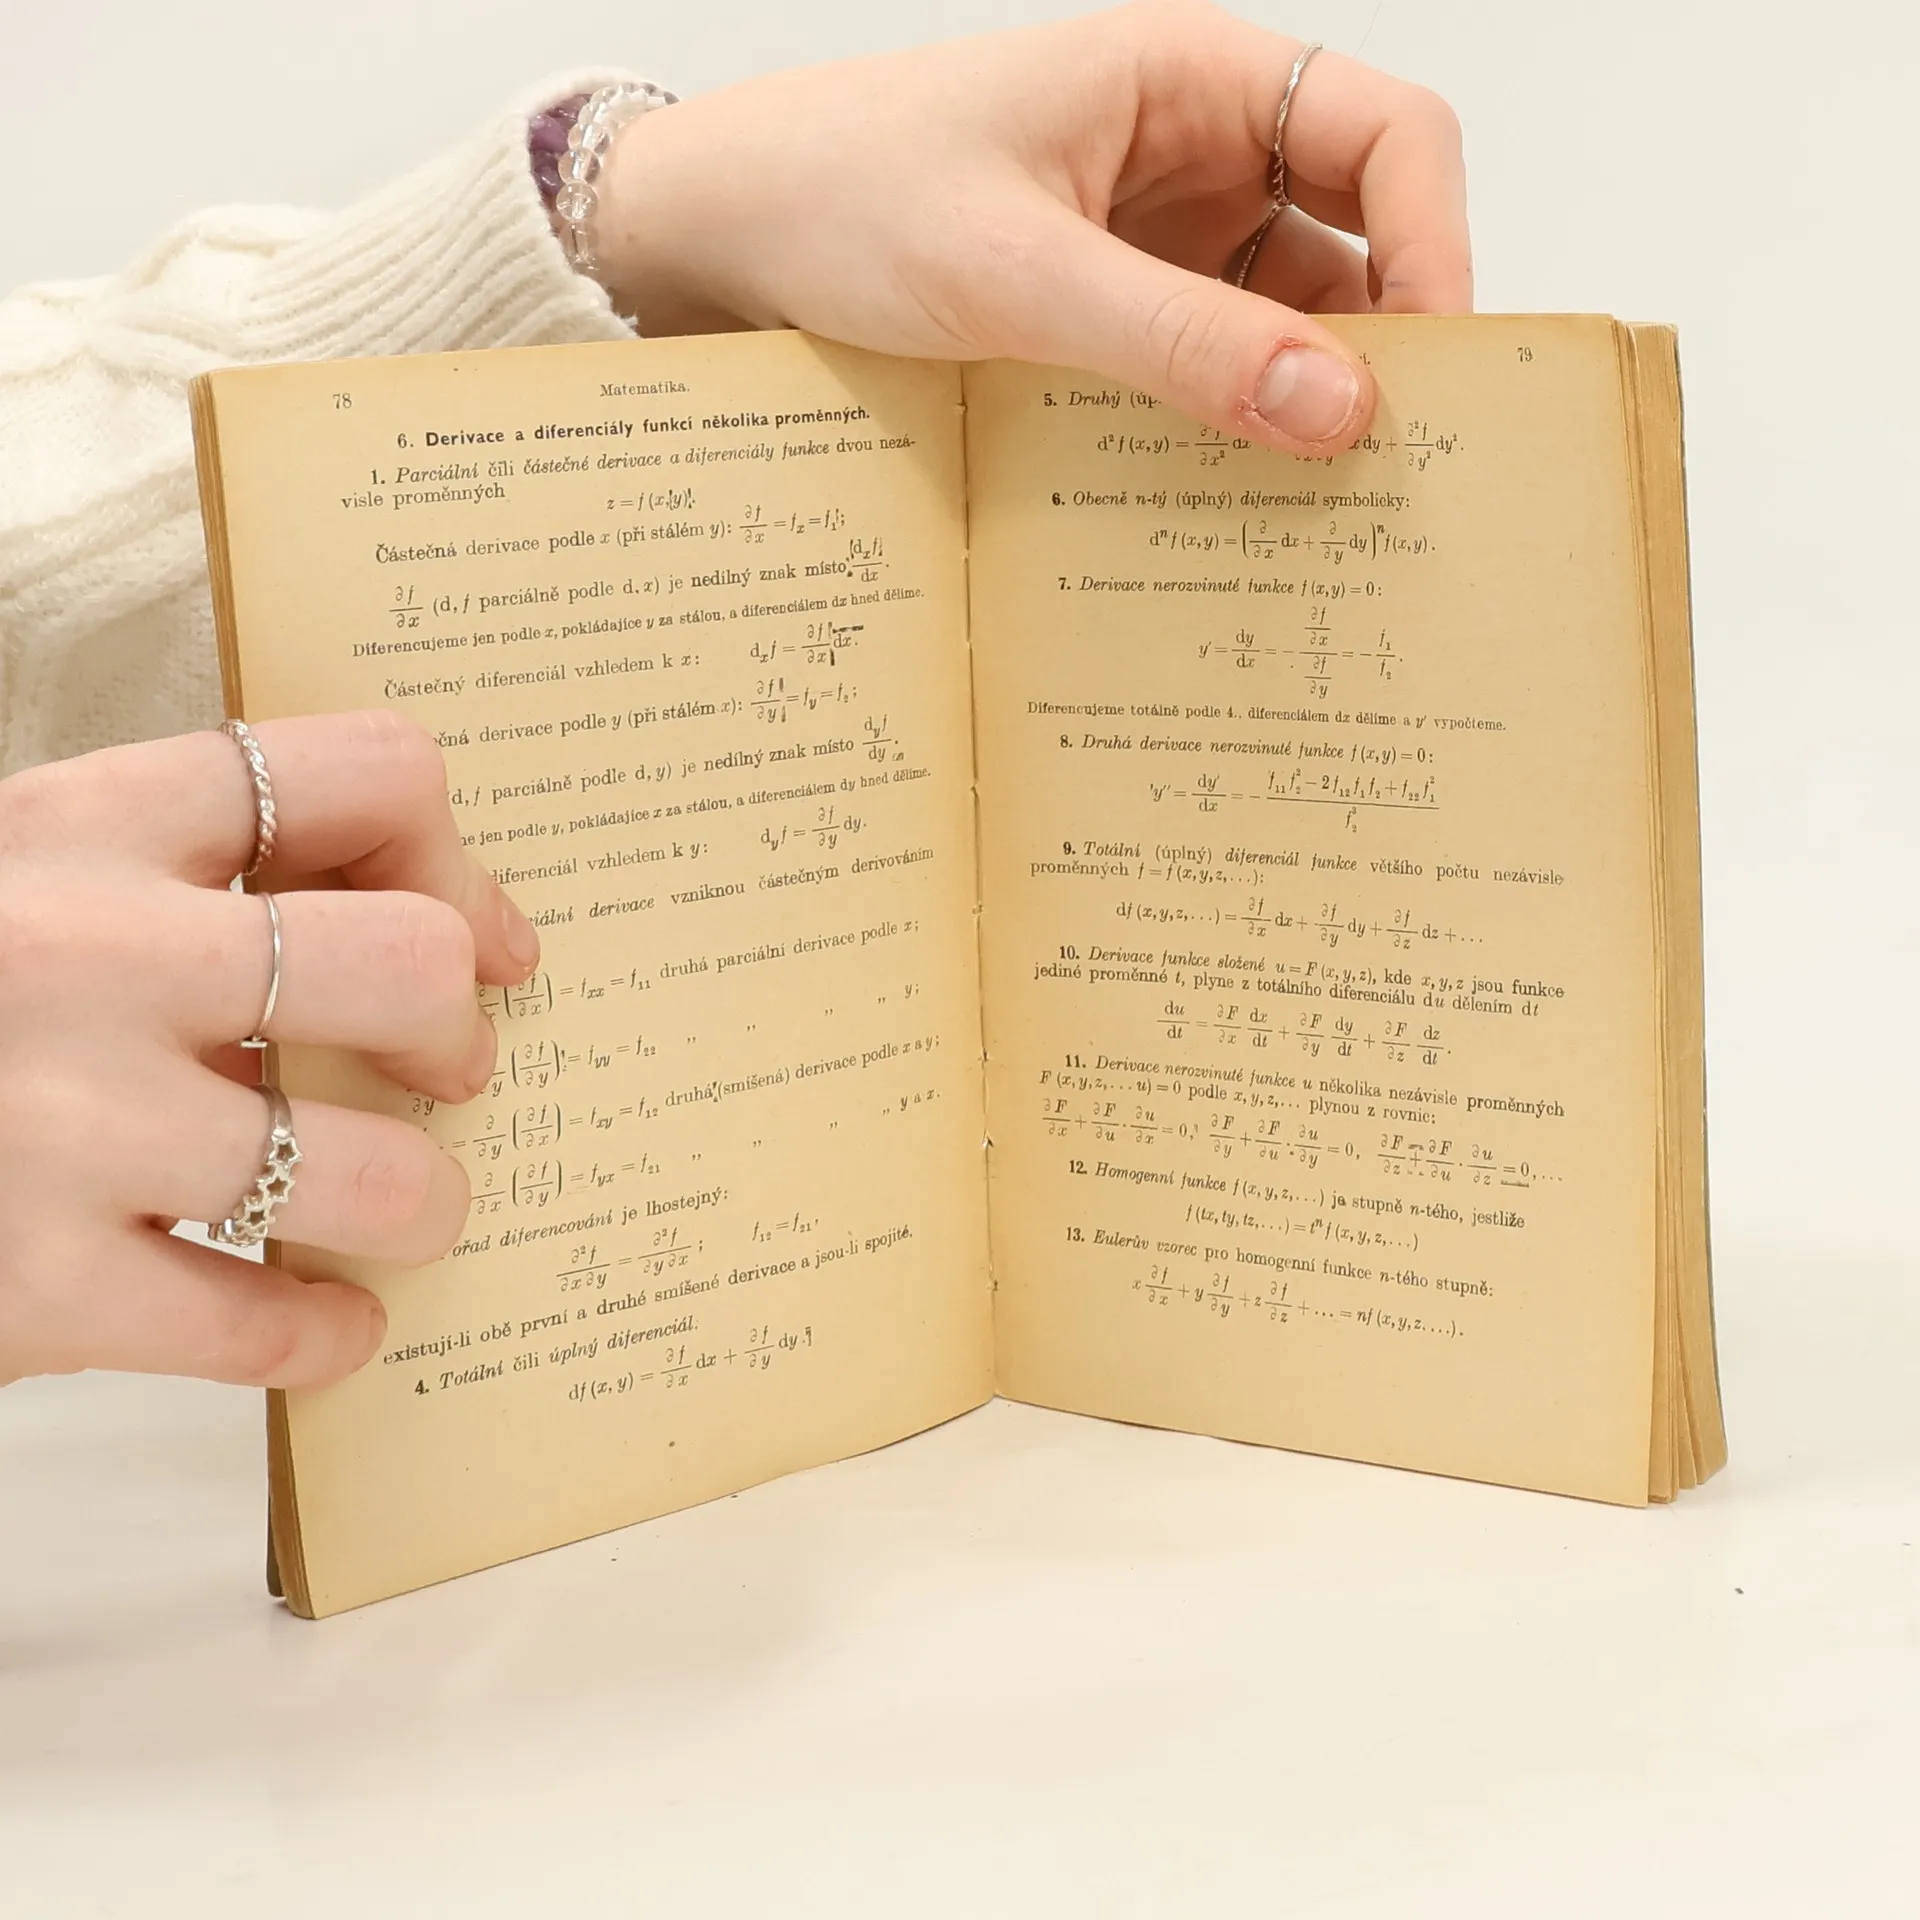 78
Matematika.
6. Derivace a diferenciály funkcí několika proměnných.
1. Parciální čili částečné derivace a diferenciály funkce dvou nezá-
visle proměnných
z = f (x, y).
Částečná derivace podle x (při stálém y): ∂f/∂x = f_x = f_1;
∂f/∂x (d, f parciálně podle d, x) je nedílný znak místo d_x f/dx.
Diferencujeme jen podle x, pokládajíce y za stálou, a diferenciálem dx hned dělíme.
Částečný diferenciál vzhledem k x: d_x f = ∂f/∂x dx.
podle y (při stálém x): ∂f/∂y = f_y = f_2;
d, f parciálně podle d, y) je nedílný znak místo d_y f/dy.
jen podle y, pokládajíce x za stálou, a diferenciálem dy hned dělíme.
diferenciál vzhledem k y: d_y f = ∂f/∂y dy.
derivace vzniknou částečným derivováním
(∂f/∂x) = f_xx = f_11 druhá parciální derivace podle x;
(∂f/∂y) = f_yy = f_22 „ „ „ „ y;
= ∂/∂y (∂f/∂x) = f_xy = f_12 druhá (smíšená) derivace podle x a y;
∂/∂x (∂f/∂y) = f_yx = f_21 „ „ „ „ y a x.
diferencování je lhostejný:
∂²f/∂x∂y = ∂²f/∂y∂x; f_12 = f_21,
existují-li obě první a druhé smíšené derivace a jsou-li spojité.
4. Totální čili úplný diferenciál:
df (x, y) = ∂f/∂x dx + ∂f/∂y dy.
79
5. Druhý
d² f (x, y) = ∂²f/∂x² dx dy + ∂²f/∂y² dy².
6. Obecně n-tý (úplný) diferenciál symbolicky:
dⁿ f (x, y) = (∂/∂x dx + ∂/∂y dy)ⁿ f (x, y).
7. Derivace nerozvinuté funkce f (x, y) = 0:
y' = dy/dx = − (∂f/∂x)/(∂f/∂y) = − f_1/f_2.
Diferencujeme totálně podle 4., diferenciálem dx dělíme a y' vypočteme.
8. Druhá derivace nerozvinuté funkce f (x, y) = 0:
'y'' = dy'/dx = − (f_11 f_2² − 2 f_12 f_1 f_2 + f_22 f_1²)/f_2³
9. Totální (úplný) diferenciál funkce většího počtu nezávisle
proměnných f = f (x, y, z, ...):
df (x, y, z, ...) = ∂f/∂x dx + ∂f/∂y dy + ∂f/∂z dz + ...
10. Derivace funkce složené u = F (x, y, z), kde x, y, z jsou funkce
jediné proměnné t, plyne z totálního diferenciálu du dělením dt
du/dt = ∂F/∂x dx/dt + ∂F/∂y dy/dt + ∂F/∂z dz/dt.
11. Derivace nerozvinuté funkce u několika nezávisle proměnných
F (x, y, z, ... u) = 0 podle x, y, z, ... plynou z rovnic:
∂F/∂x + ∂F/∂u · ∂u/∂x = 0, ∂F/∂y + ∂F/∂u · ∂u/∂y = 0, ∂F/∂z + ∂F/∂u · ∂u/∂z = 0, ...
12. Homogenní funkce f (x, y, z, ...) je stupně n-tého, jestliže
f (tx, ty, tz, ...) = tⁿ f (x, y, z, ...)
13. Eulerův vzorec pro homogenní funkce n-tého stupně:
x ∂f/∂x + y ∂f/∂y + z ∂f/∂z + ... = nf (x, y, z, ...).